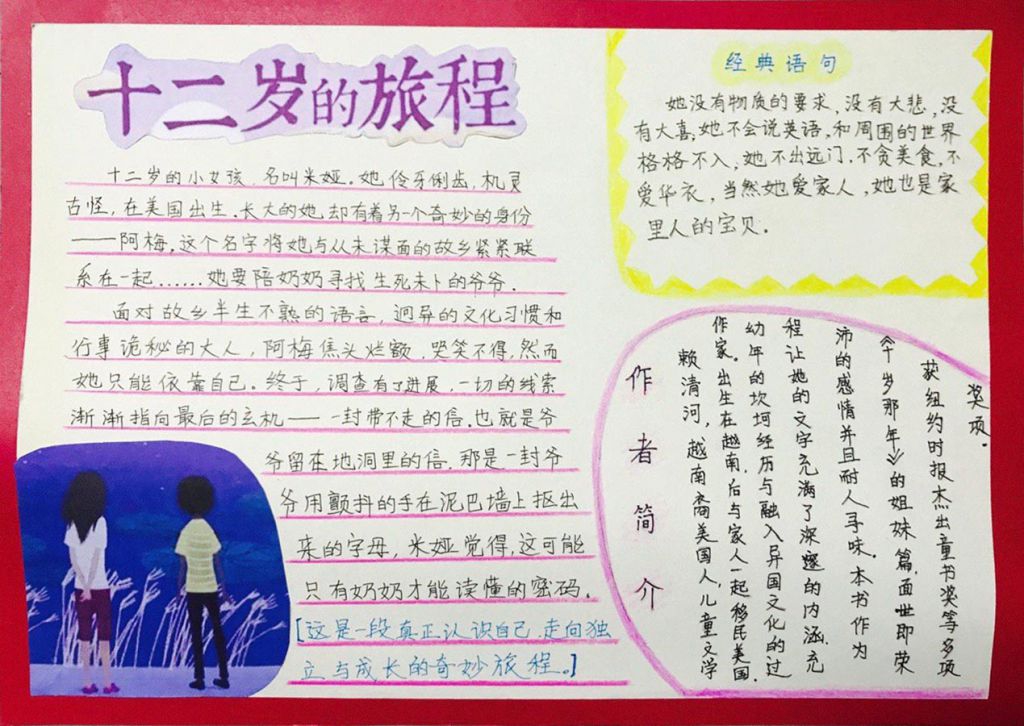 十二岁的旅程
十二岁的小女孩，名叫米娅，她伶牙俐齿，机灵
古怪，在美国出生、长大的她却有着另一个奇妙的身份
——阿梅，这个名字将她与从未谋面的故乡紧紧联
系在一起……她要陪奶奶寻找生死未卜的爷爷．
面对故乡半生不熟的语言，迥异的文化习惯和
行事诡秘的大人，阿梅焦头烂额，哭笑不得，然而
她只能依靠自己。终于，调查有了进展，一切的线索
渐渐指向最后的玄机——一封带不走的信．也就是爷
爷留在地洞里的信．那是一封爷
爷用颤抖的手在泥巴墙上抠出
来的字母，米娅觉得，这可能
只有奶奶才能读懂的密码．
[这是一段真正认识自己走向独
立与成长的奇妙旅程。]
经典语句
她没有物质的要求，没有大悲，没
有大喜，她不会说英语，和周围的世界
格格不入，她不出远门，不贪美食，不
爱华衣，当然她爱家人，她也是家
里人的宝贝．
作者简介
赖清河，越南裔美国人，儿童文学
作家。出生在越南，后与家人一起移民美国．
幼年的坎坷经历与融入异国文化的过
程让她的文字充满了深邃的内涵、充
沛的感情并且耐人寻味。本书作为
《十岁那年》的姐妹篇，面世即荣
获纽约时报杰出童书奖等多项
奖项。